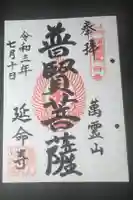 奉拝
萬靈山
普賢菩薩
延命寺
令和三年
七月十日